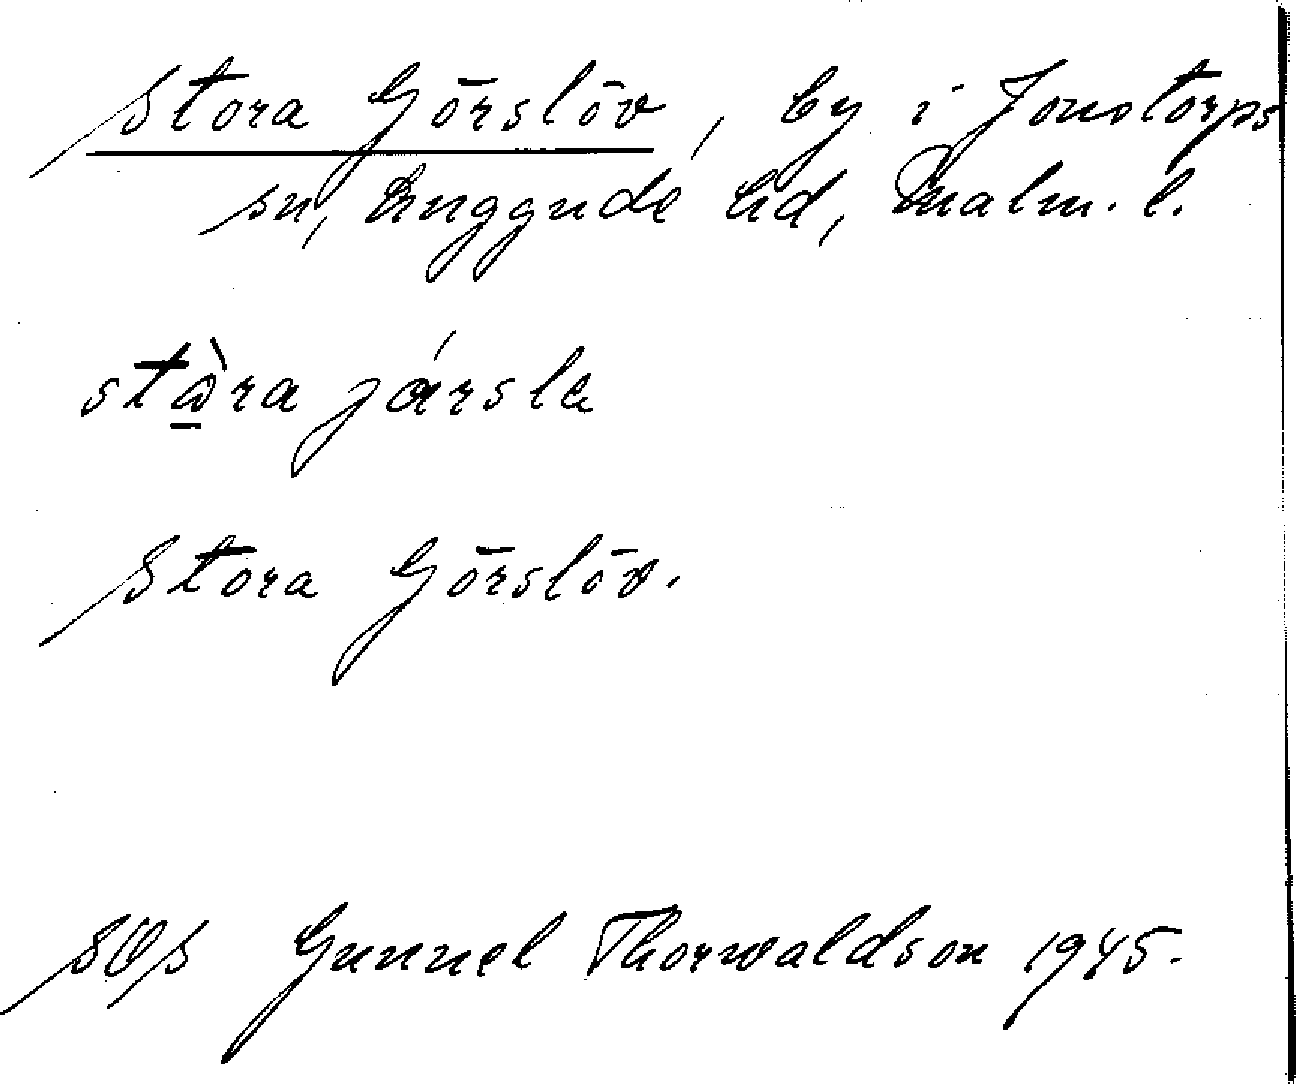 Stora Görslöv, by i Jonstorps
sn, Luggude hd, Malm. l.
stⱥ̀ra jársla
Stora Görslöv.
SOS Gunnel Thorwaldson 1945.